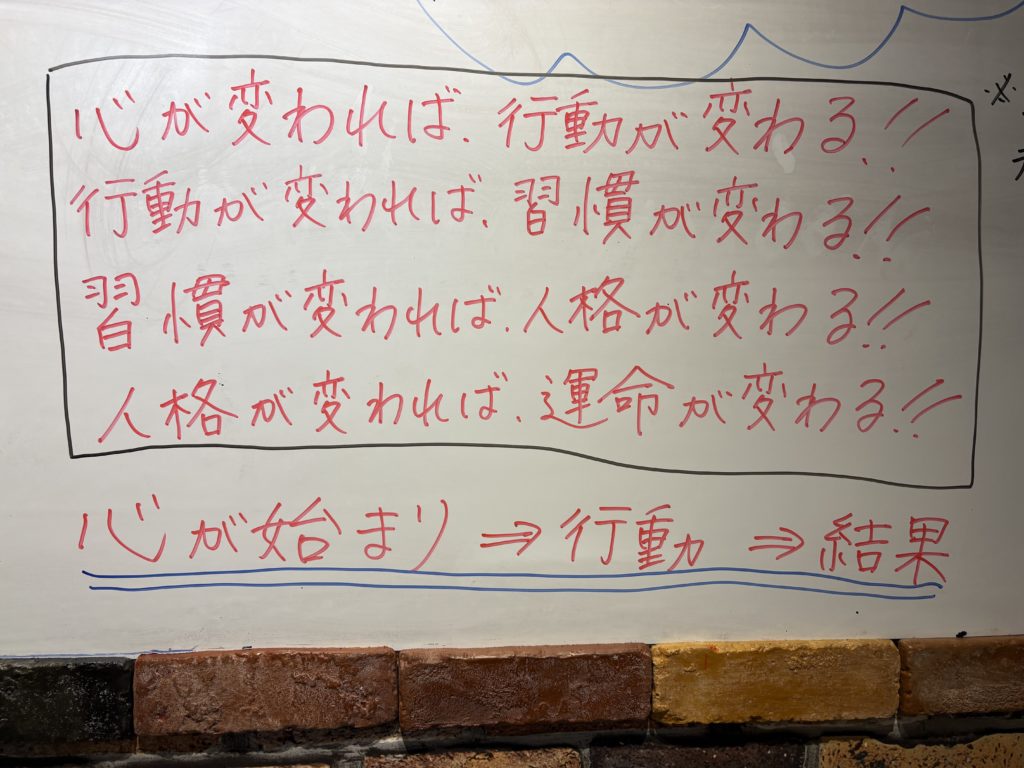 心が変われば、行動が変わる!!
行動が変われば、習慣が変わる!!
習慣が変われば、人格が変わる!!
人格が変われば、運命が変わる!!
心が始まり⇒行動⇒結果
※